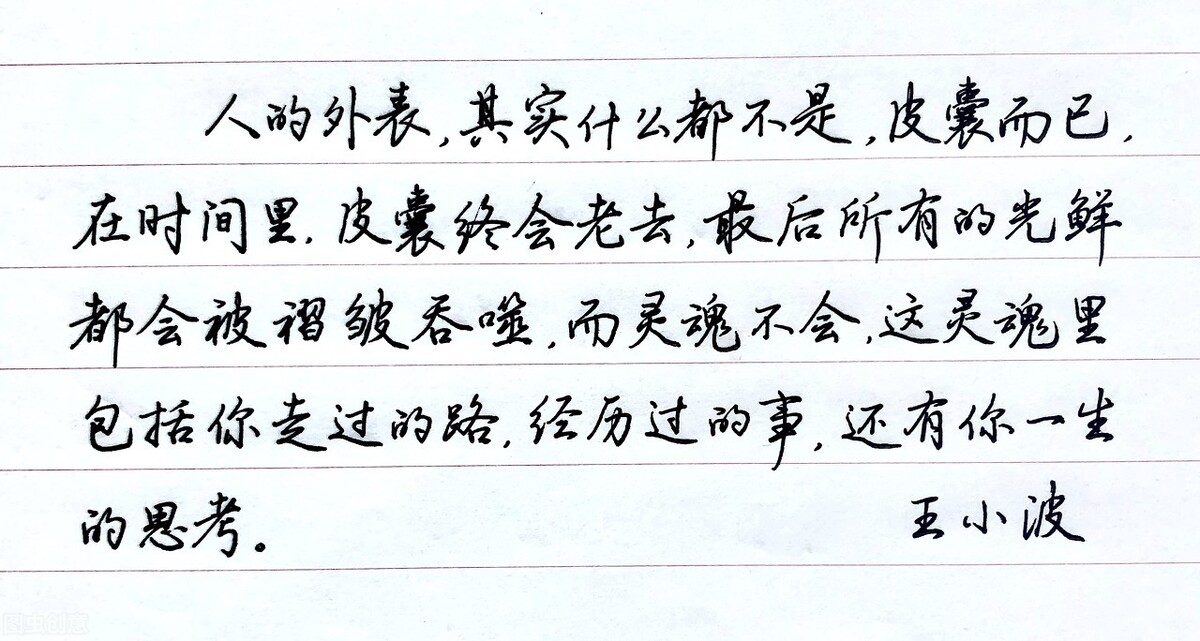 人的外表,其实什么都不是,皮囊而已,
在时间里,皮囊终会老去,最后所有的光鲜
都会被褶皱吞噬,而灵魂不会,这灵魂里
包括你走过的路,经历过的事,还有你一生
的思考。 王小波
图虫创意